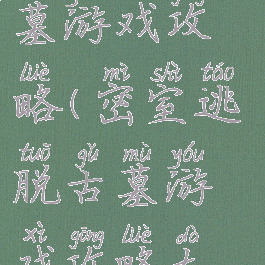 墓游戏攻
lüè mì shì táo
略(密室逃
tuō gǔ mù yóu
脱古墓游
xì gōng lüè dà
戏攻略大